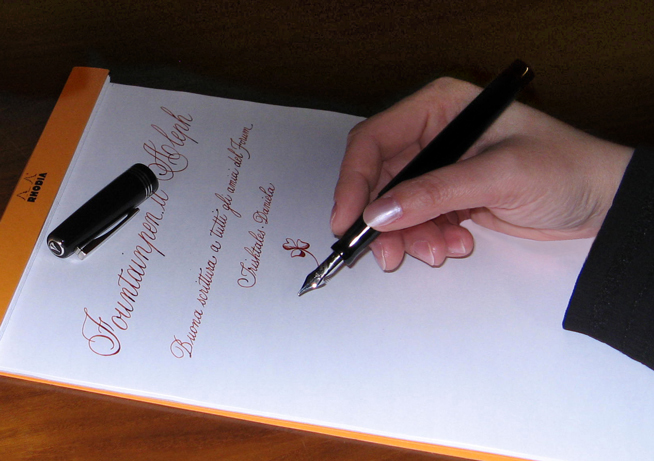 RHODIA
Fountainpen.it Aleph
Buona scrittura a tutti gli amici del Forum
Irishtales. Daniela